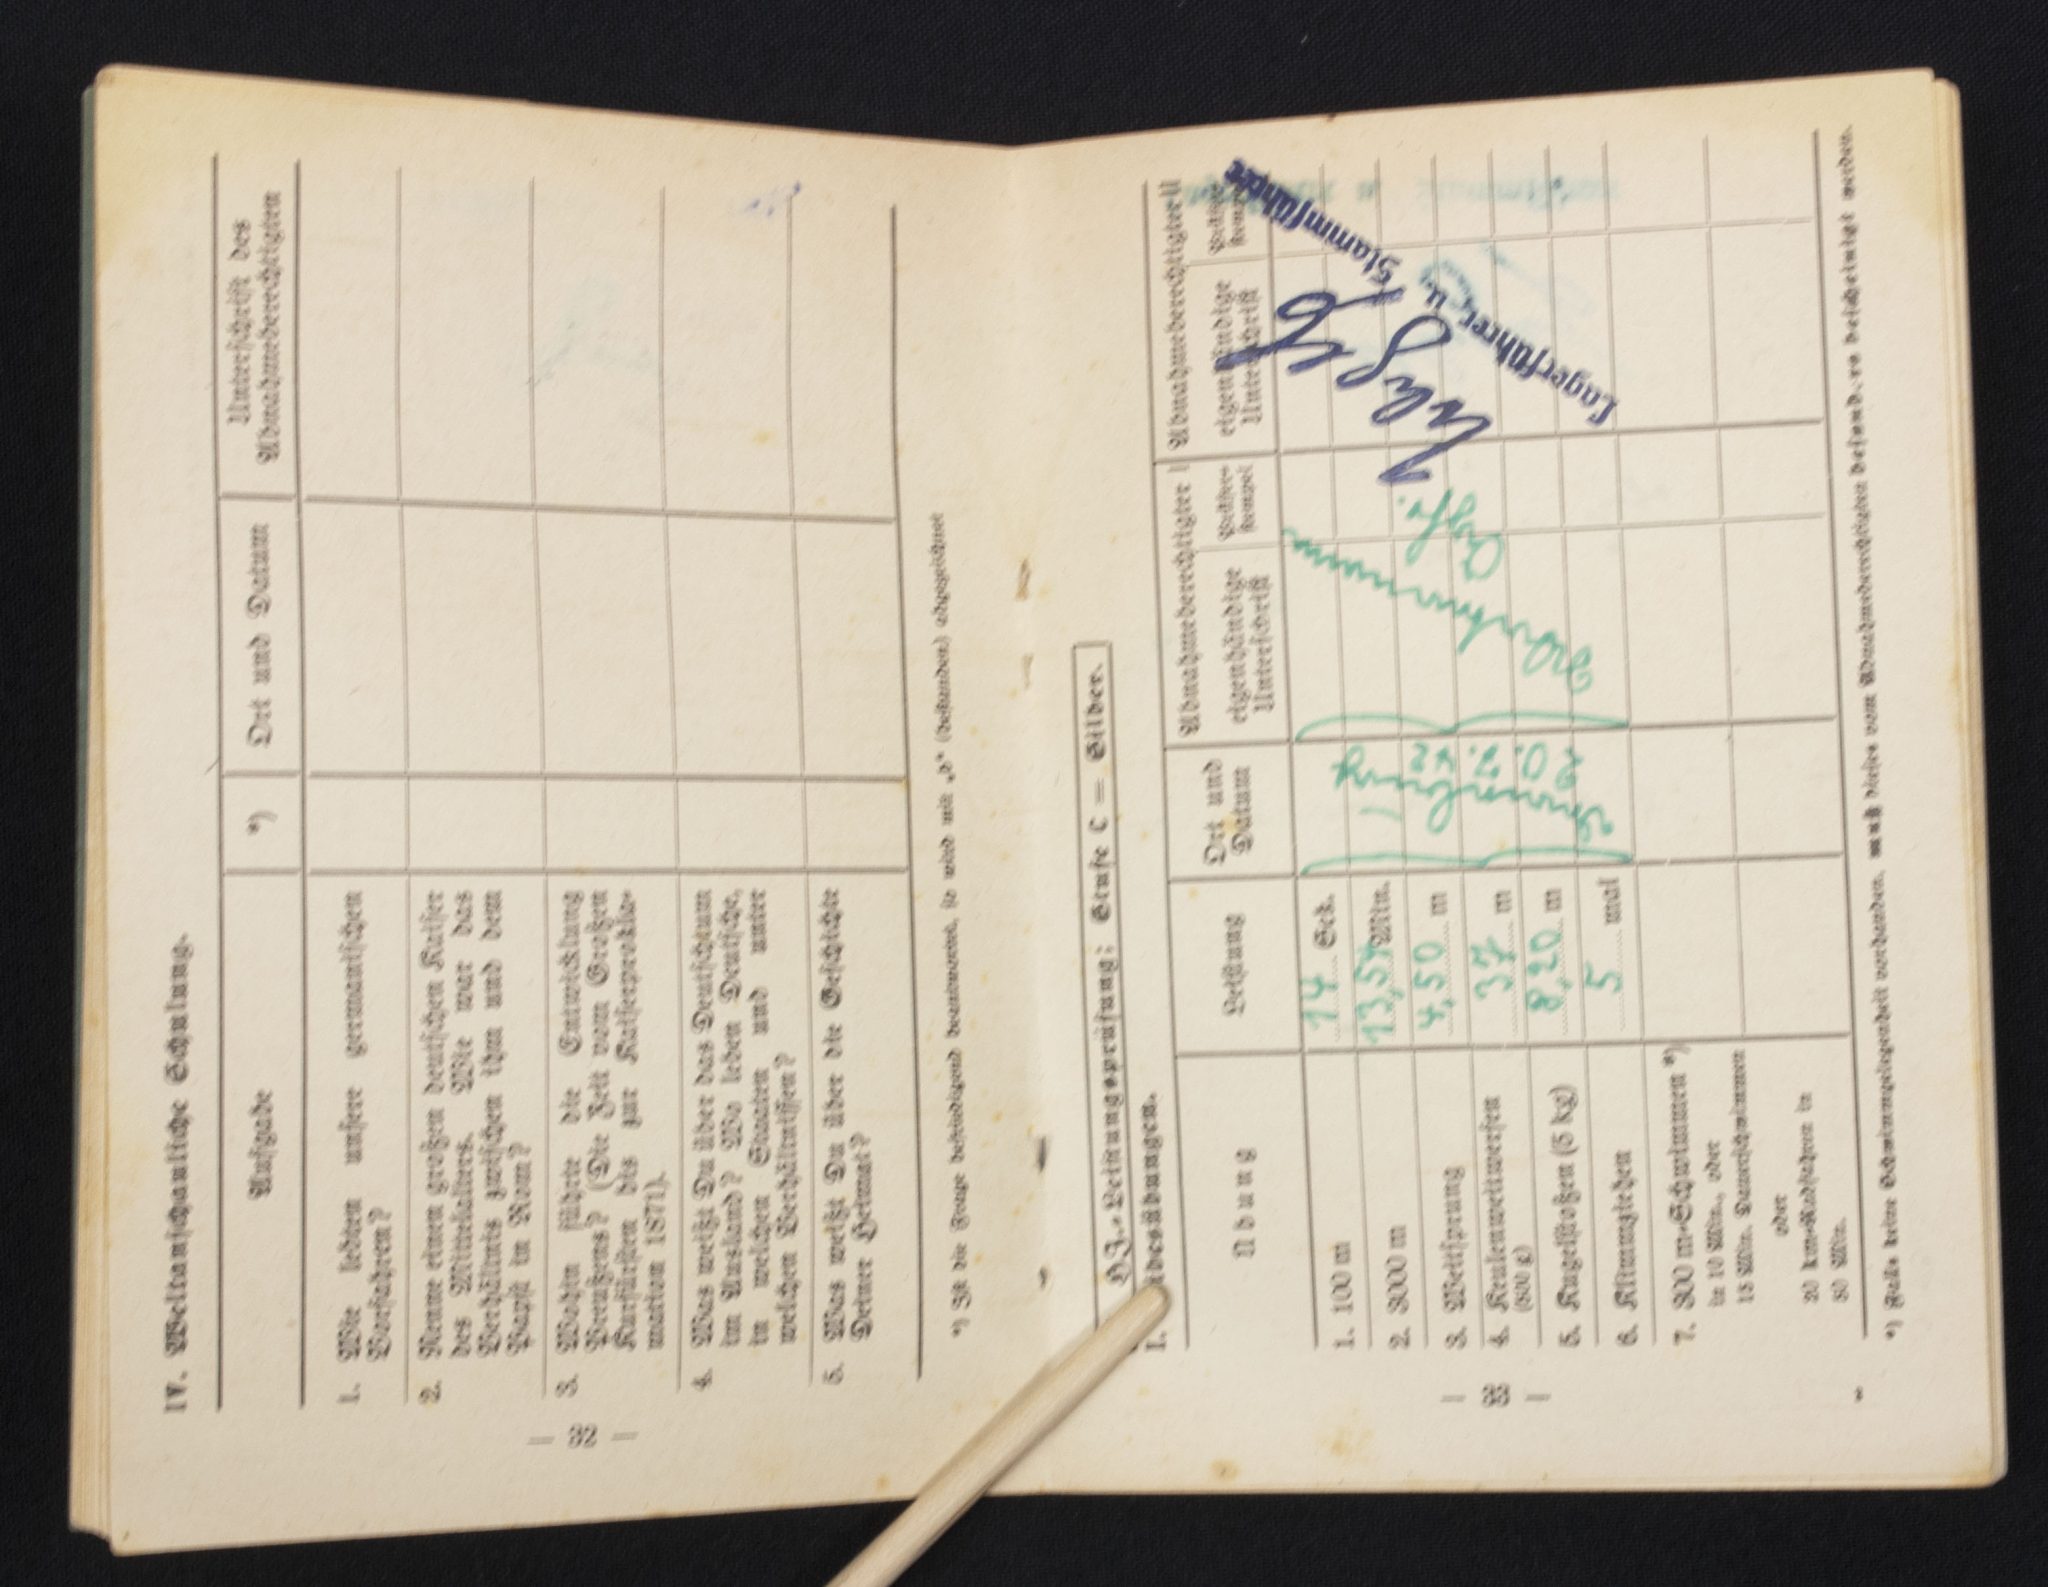 IV. Weltanschauliche Schulung.
Aufgabe
*)
Ort und Datum
Unterschrift des
Abnahmeberechtigten
1. Wie lebten unsere germanischen
Vorfahren?
2. Nenne einen großen deutschen Kaiser
des Mittelalters. Wie war das
Verhältnis zwischen ihm und dem
Papst in Rom?
3. Wohin führte die Entwicklung
Preußens? (Die Zeit vom Großen
Kurfürsten bis zur Kaiserprokla-
mation 1871).
4. Was weißt Du über das Deutschtum
im Ausland? Wo leben Deutsche,
in welchen Staaten und unter
welchen Verhältnissen?
5. Was weißt Du über die Geschichte
Deiner Heimat?
*) Ist die Frage befriedigend beantwortet, so wird mit „b“ (bestanden) abgezeichnet
— 32 —
H.J.-Leistungsprüfung; Stufe C = Silber.
I.
Übung
Leistung
Ort und
Datum
Abnahmeberechtigter I
eigenhändige
Unterschrift
Abnahmeberechtigter II
eigenhändige
Unterschrift
1. 100 m
14 Sek.
2. 3000 m
13,54 Min.
3. Weitsprung
4,50 m
4. Keulenweitwerfen
(500 g)
37 m
5. Kugelstoßen (5 kg)
8,20 m
6. Klimmziehen
5 mal
7. 300 m-Schwimmen *)
in 10 Min., oder
15 Min. Dauerschwimmen
oder
20 km-Radfahren in
50 Min.
20. 7. 42
Lagerführer u. Stammführer
*) Falls keine Schwimmgelegenheit vorhanden, muß dieses vom Abnahmeberechtigten besonders bescheinigt werden.
— 33 —